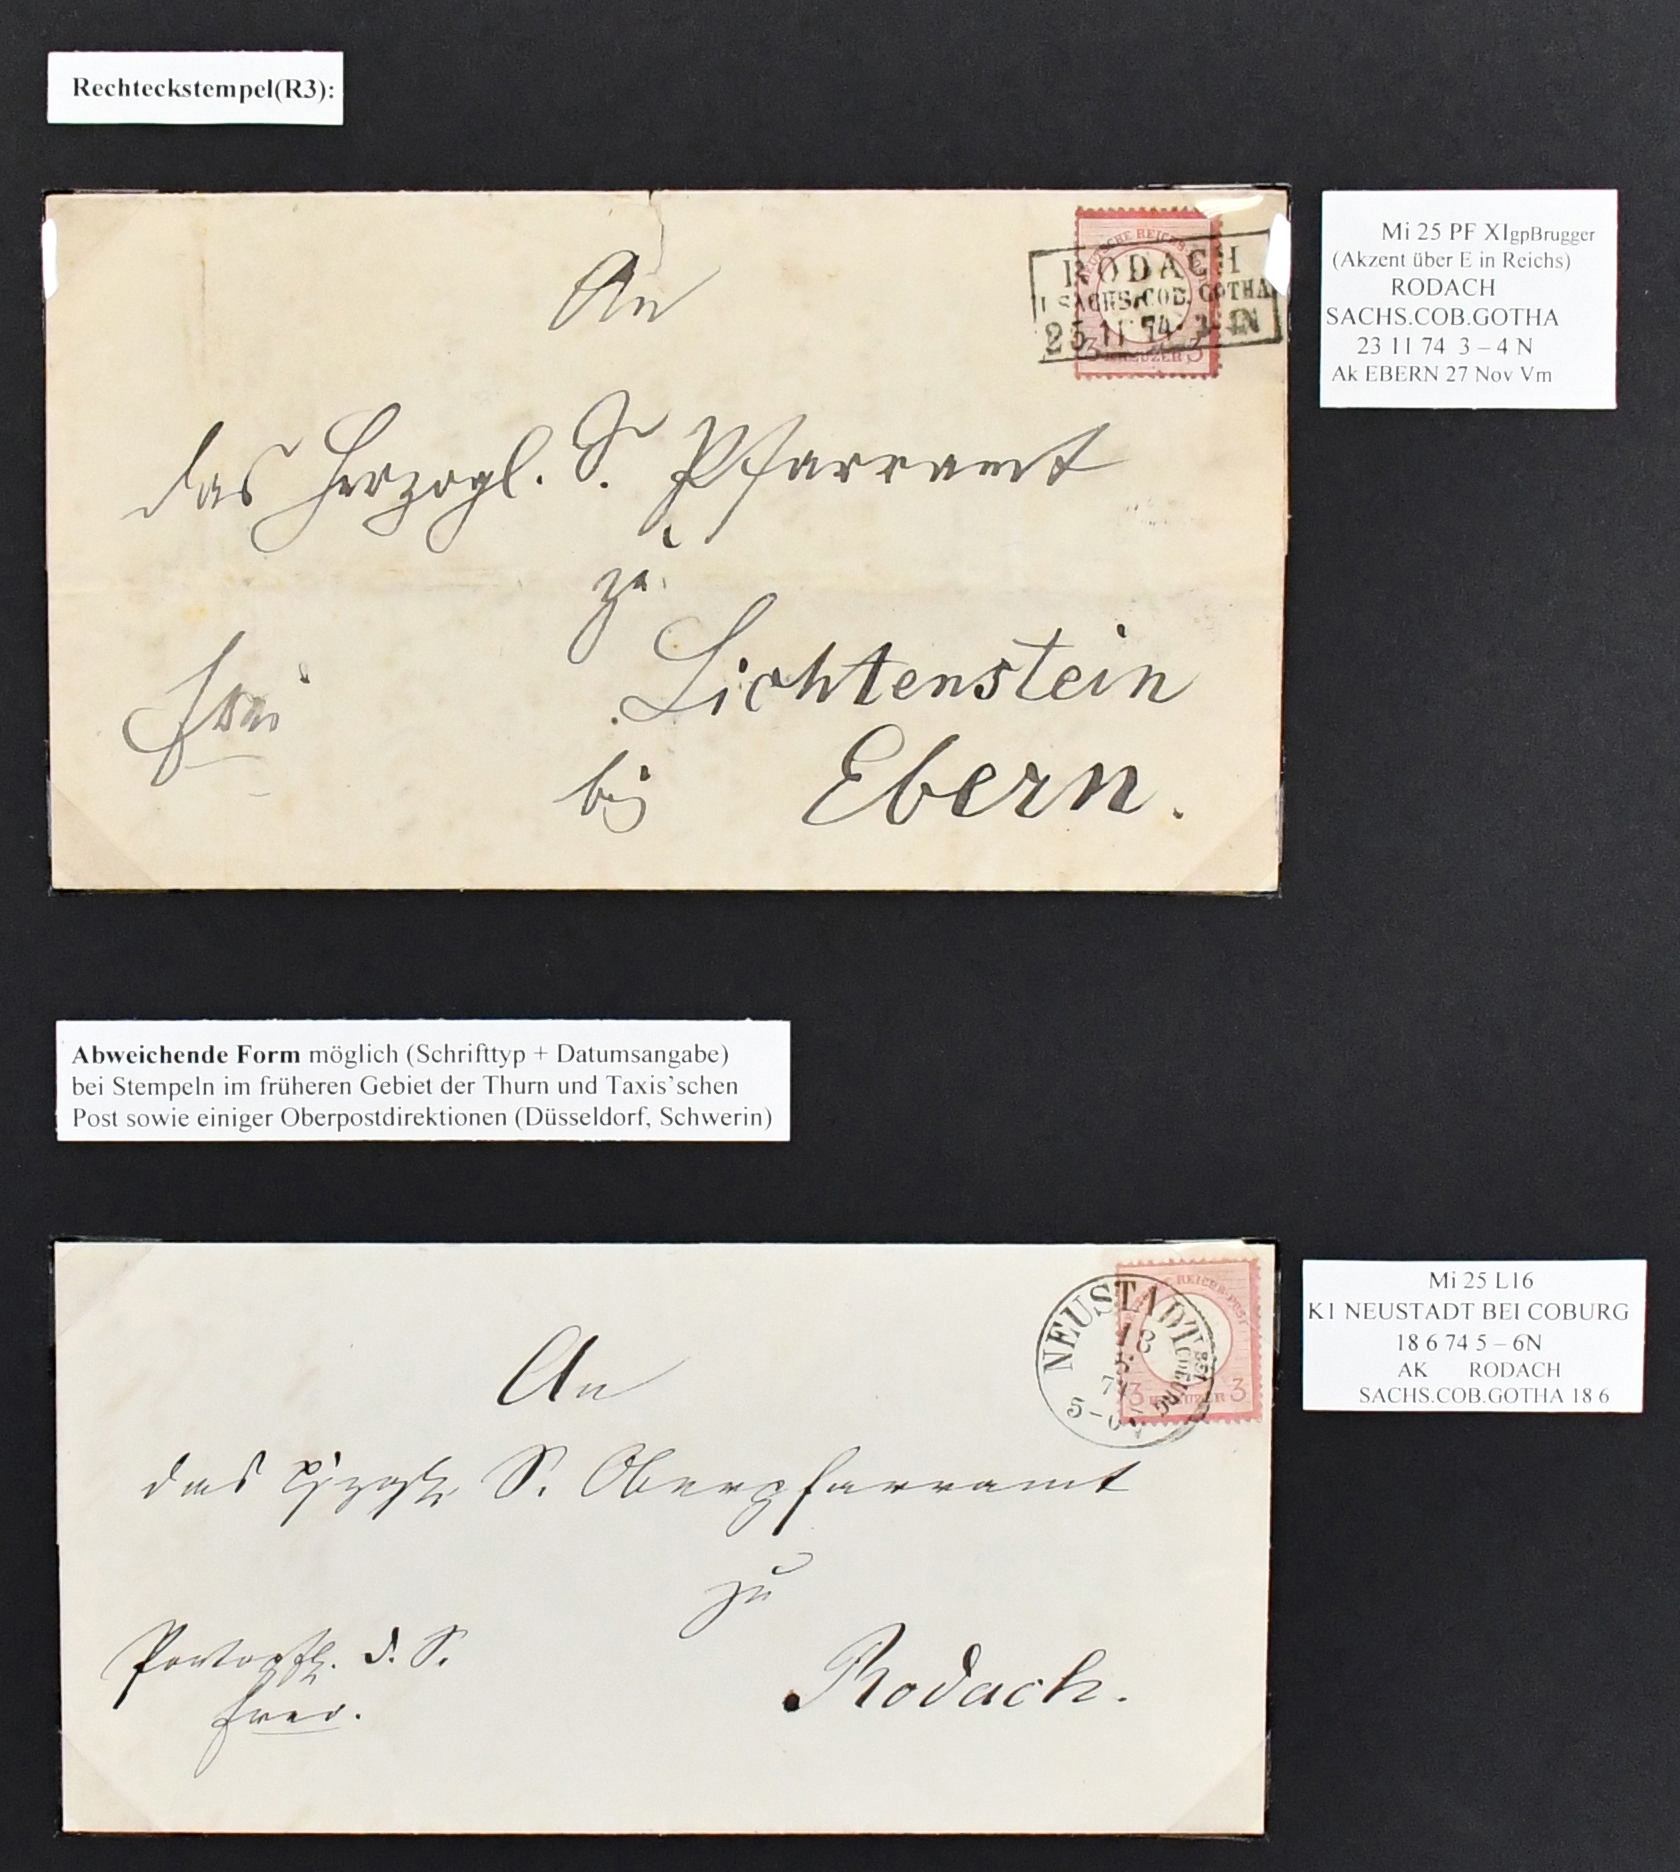 Rechteckstempel(R3):
An
das Herzogl. S. Pfarramt
zu
Lichtenstein
frei
bei Ebern.
DEUTSCHE REICHS-POST
RODACH
I. SACHS.COB.GOTHA
25 11 74 3-4N
3 KREUZER 3
Mi 25 PF XIgpBrugger
(Akzent über E in Reichs)
RODACH
SACHS.COB.GOTHA
23 11 74 3 – 4 N
Ak EBERN 27 Nov Vm
Abweichende Form möglich (Schrifttyp + Datumsangabe)
bei Stempeln im früheren Gebiet der Thurn und Taxis’schen
Post sowie einiger Oberpostdirektionen (Düsseldorf, Schwerin)
An
das S. Oberpfarramt
zu
Rodach.
Portopfl. d. S.
frei.
REICHS-POST
NEUSTADT
BEI COBURG
18
6
74
5-6N
3 KREUZER 3
Mi 25 L16
K1 NEUSTADT BEI COBURG
18 6 74 5 – 6N
AK RODACH
SACHS.COB.GOTHA 18 6